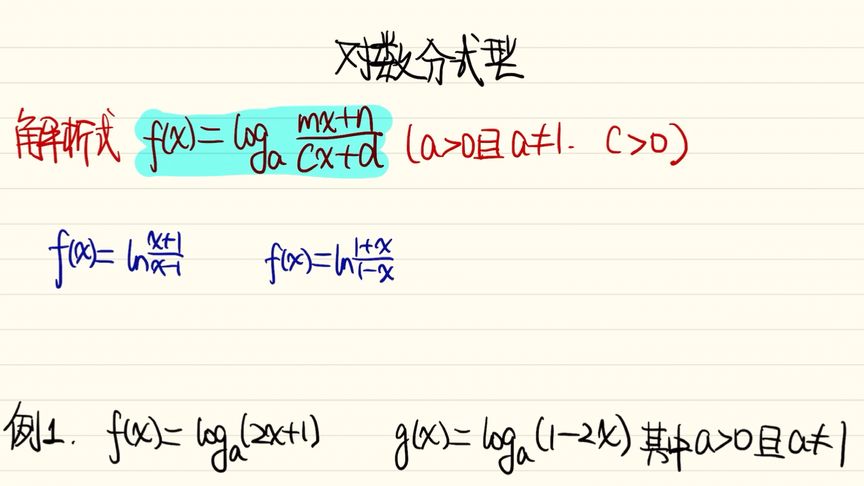 对数分式型
解析式 f(x)=log_a (mx+n)/(cx+d) (a>0且a≠1. c>0)
f(x)=ln (x+1)/(x-1) f(x)=ln (1+x)/(1-x)
例1. f(x)=log_a(2x+1) g(x)=log_a(1-2x) 其中a>0且a≠1